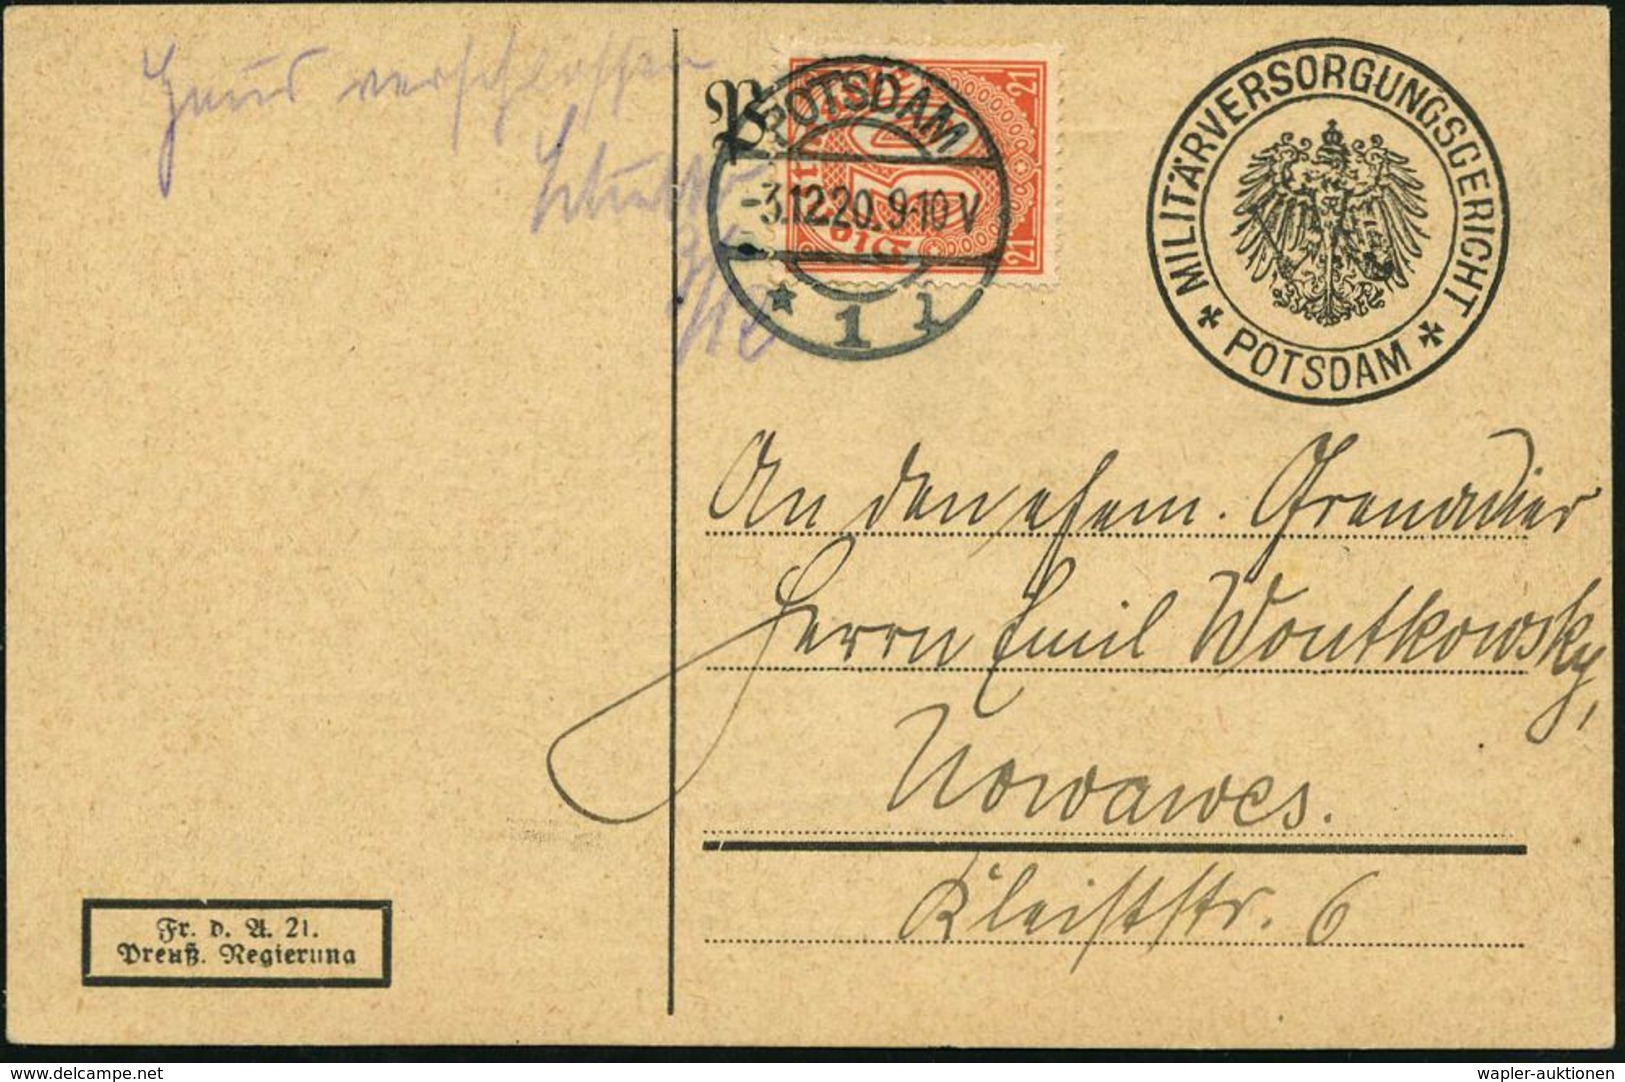 Haus verschlossen
Schulze
3/12
POTSDAM
-3.12.20. 9-10 V
* 1 i
21
21
MILITÄRVERSORGUNGSGERICHT
POTSDAM
An den ehem. Grenadier
Herrn Emil Wontkowsky,
Nowawes.
Kleiststr. 6
Fr. d. A. 21.
Preuß. Regierung
delcampe.net
wapler-auktionen